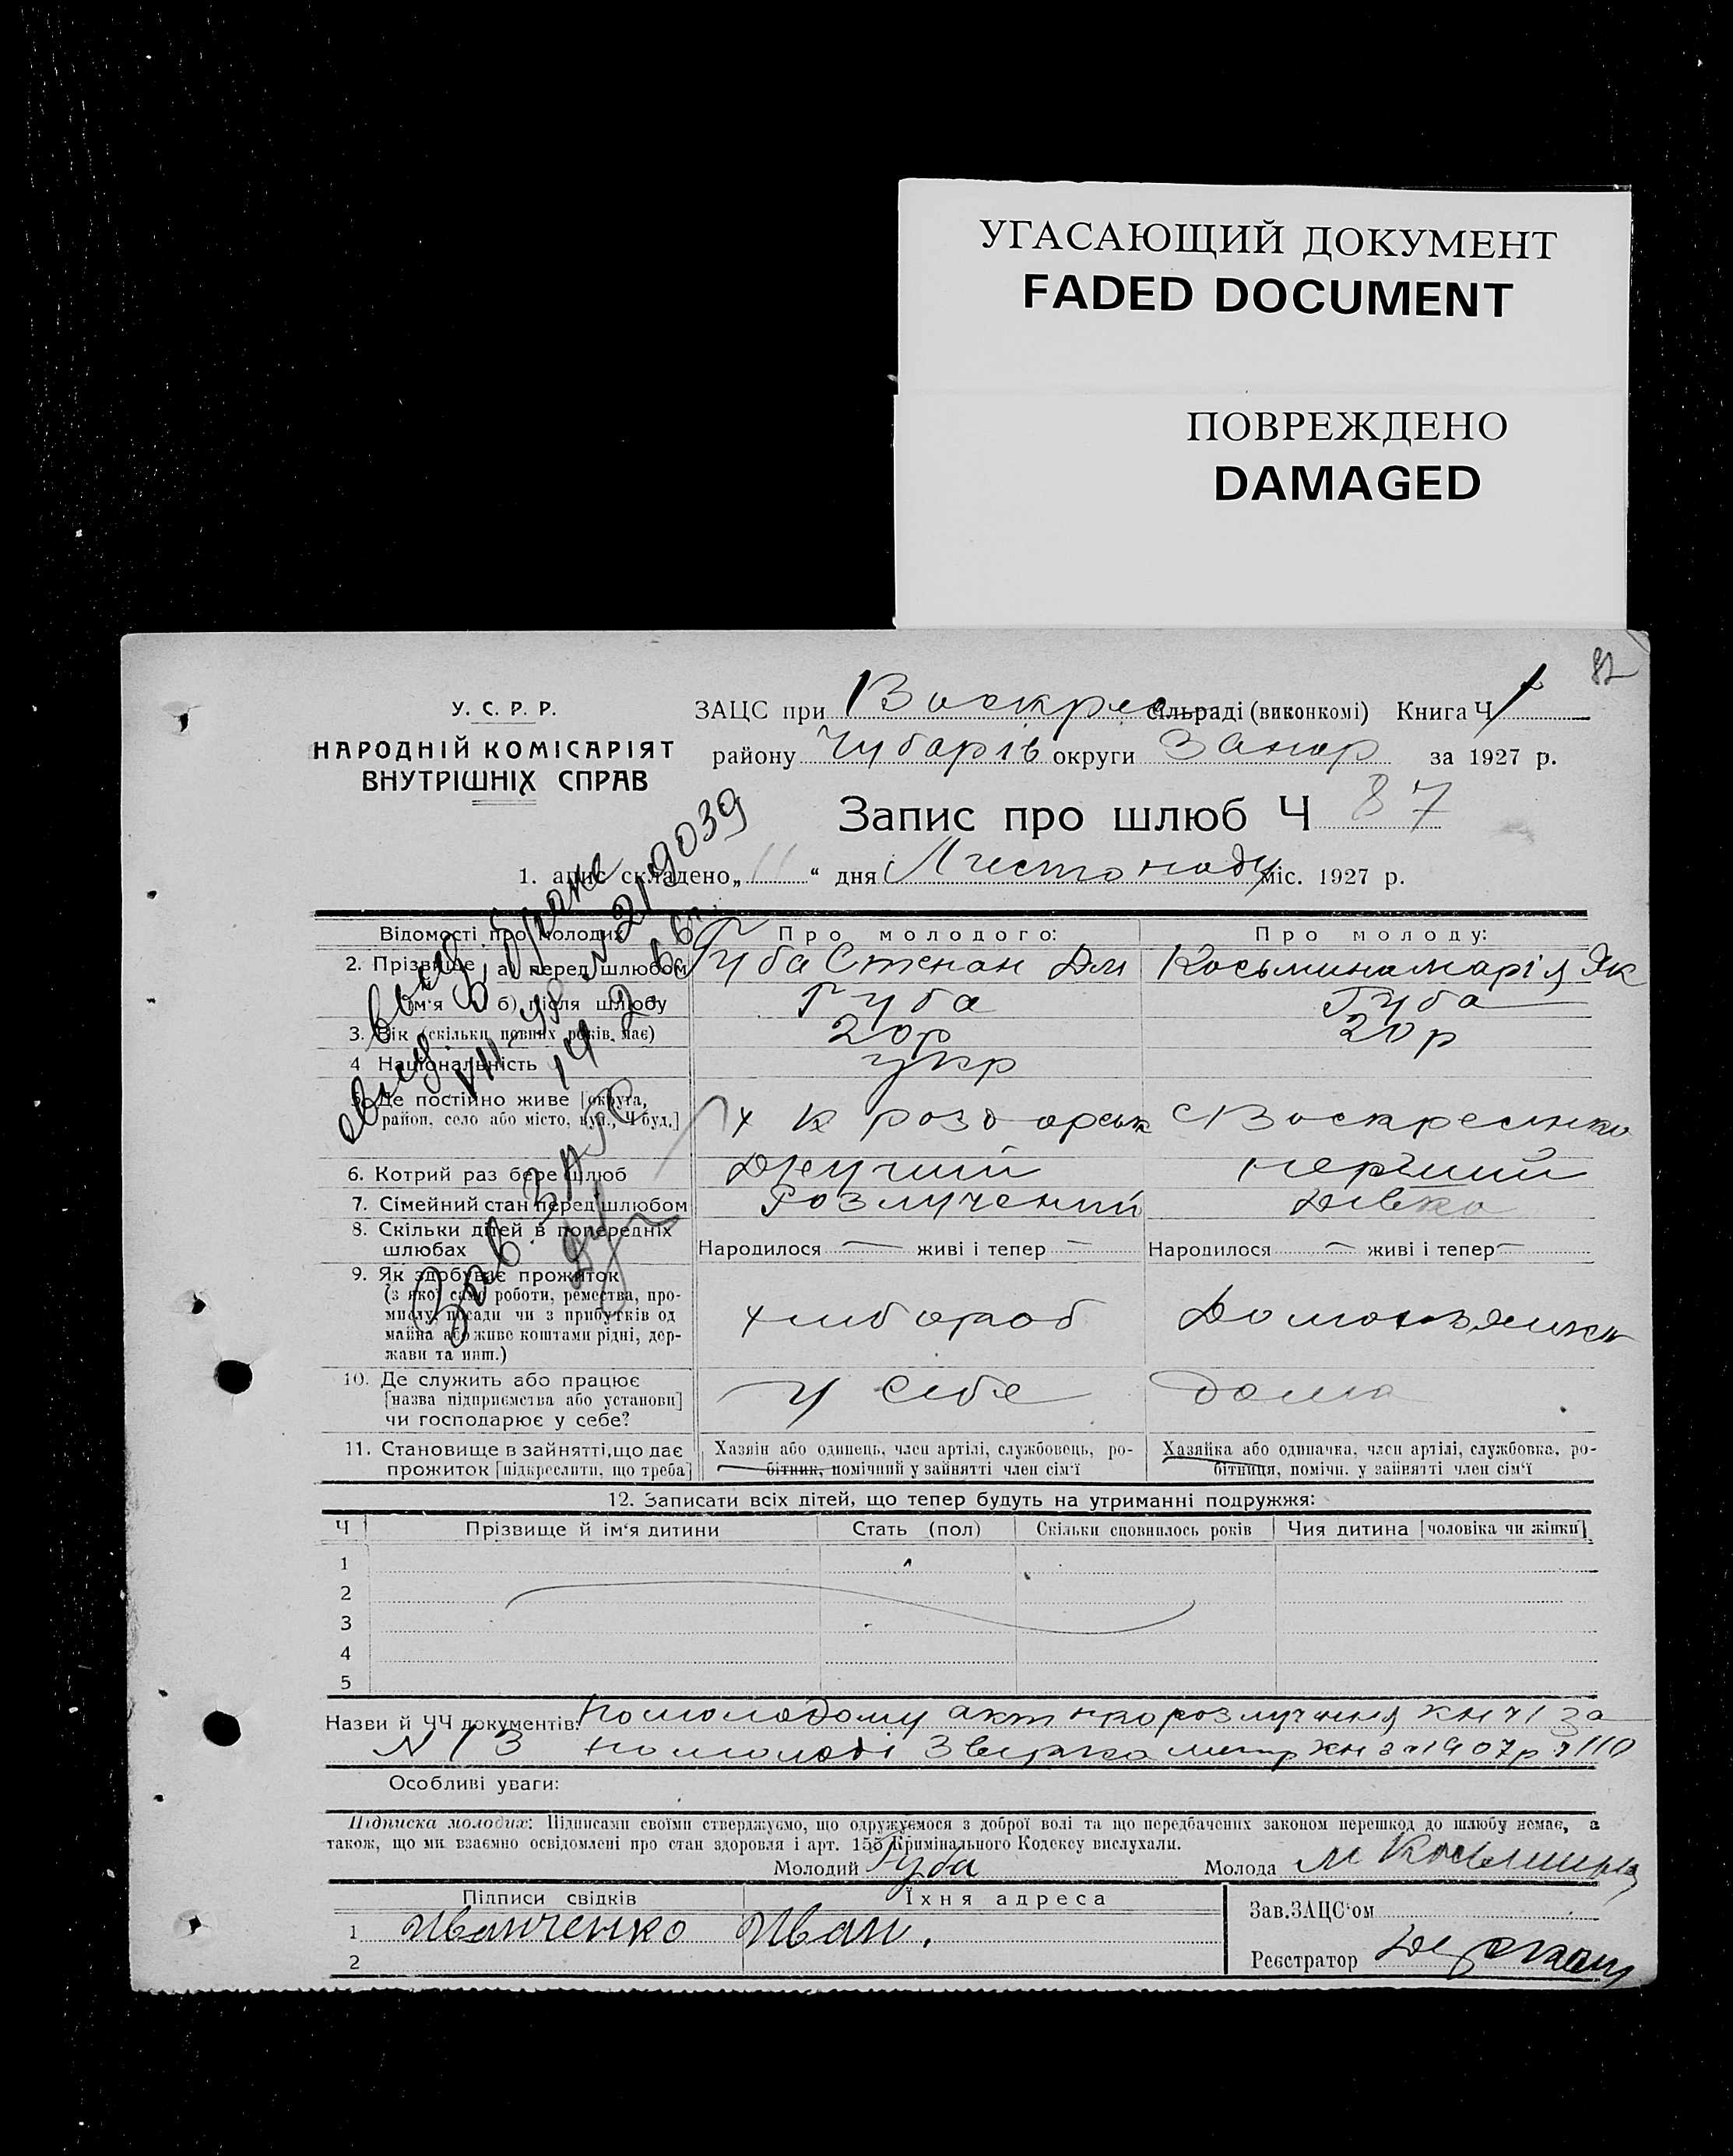 УГАСАЮЩИЙ ДОКУМЕНТ
FADED DOCUMENT
ПОВРЕЖДЕНО
DAMAGED
82
У. С. Р. Р.
НАРОДНІЙ КОМІСАРІЯТ
ВНУТРІШНІХ СПРАВ
ЗАЦС при Воскрес сільраді (виконкомі) Книга Ч 1
району Чубарів округи Запор за 1927 р.
Запис про шлюб Ч 87
1. апис складено „ 11 “ дня Листопаду міс. 1927 р.
Відомості про молодих
Про молодого:
Про молоду:
2. Прізвище ім‘я а) перед шлюбом
Губа Степан Дм
Косьмина Марія Як
б) після шлюбу
Губа
Губа
3. Вік (скільки повних років має)
20 р
20 р
4 Національність
укр
5. Де постійно живе [округа, район, село або місто, вул., Ч буд.]
х К роздорськ
с Воскресенка
6. Котрий раз бере шлюб
Другий
перший
7. Сімейний стан перед шлюбом
Розлучений
Дівка
8. Скільки дітей в попередніх шлюбах
Народилося — живі і тепер —
Народилося — живі і тепер —
9. Як здобуває прожиток
(з якої саме роботи, ремества, про-
мислу, посади чи з прибутків од
майна або живе коштами рідні, дер-
жави та инш.)
хлібороб
10. Де служить або працює
[назва підприємства або установи]
чи господарює у себе?
у себе
дома
11. Становище в зайнятті, що дає
прожиток [підкреслити, що треба]
Хазяін або одинець, член артілі, службовець, ро-
бітник, помічний у зайнятті член сім‘ї
Хазяйка або одиначка, член артілі, службовка, ро-
бітниця, помічн. у зайнятті член сім‘ї
12. Записати всіх дітей, що тепер будуть на утриманні подружжя:
Ч
Прізвище й ім‘я дитини
Стать (пол)
Скільки сповнилось років
Чия дитина [чоловіка чи жінки]
1
2
3
4
5
Назви й ЧЧ документів: по молодому акт про розлучення кн ч 1 за
N 13 по молоді метр кн за 1907 р ч 110
Особливі уваги:
Підписка молодих: Підписами своїми стверджуємо, що одружуємося з доброї волі та що передбачених законом перешкод до шлюбу немає, а
також, що ми взаємно освідомлені про стан здоровля і арт. 155 Кримінального Кодексу вислухали.
Молодий Губа
Молода М Косьмина
Підписи свідків
Їхня адреса
1 Иванченко Иван.
2
Зав.ЗАЦС‘ом
Реєстратор
Зав. ЗАГС